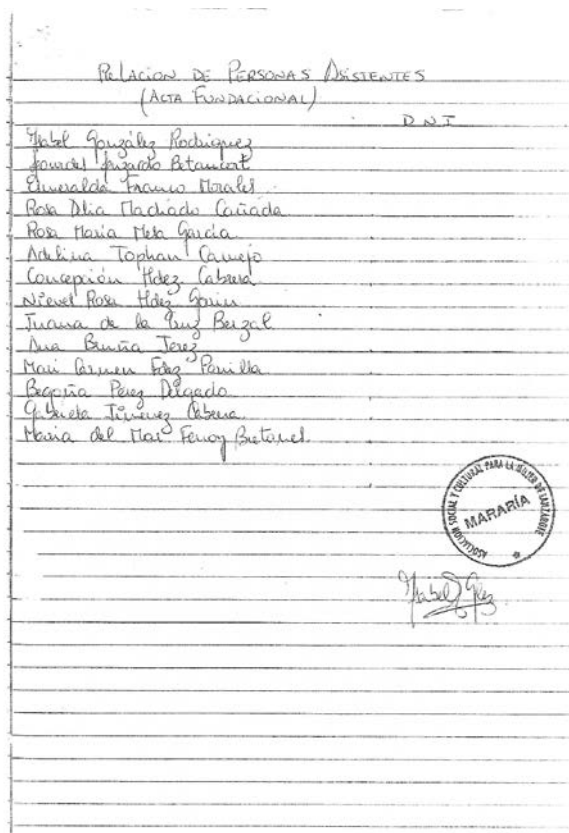 RELACION DE PERSONAS ASISTENTES
(ACTA FUNDACIONAL)
D N I
Isabel González Rodriguez
Lourdes Luzardo Betancort
Esmeralda Franco Morales
Rosa Delia Machado Cañada
Rosa Maria Mesa García
Adelina Tophan Camejo
Concepción Hdez Cabrera
Nieves Rosa Hdez
Juana de la Cruz Berzal
Ana Jerez
Mari Carmen Fdez
Begoña Pérez Delgado
Gabriela Jimenez Cabrera
Maria del Mar
ASOCIACION SOCIAL Y CULTURAL PARA LA MUJER DE LANZAROTE
MARARÍA
Isabel Glez